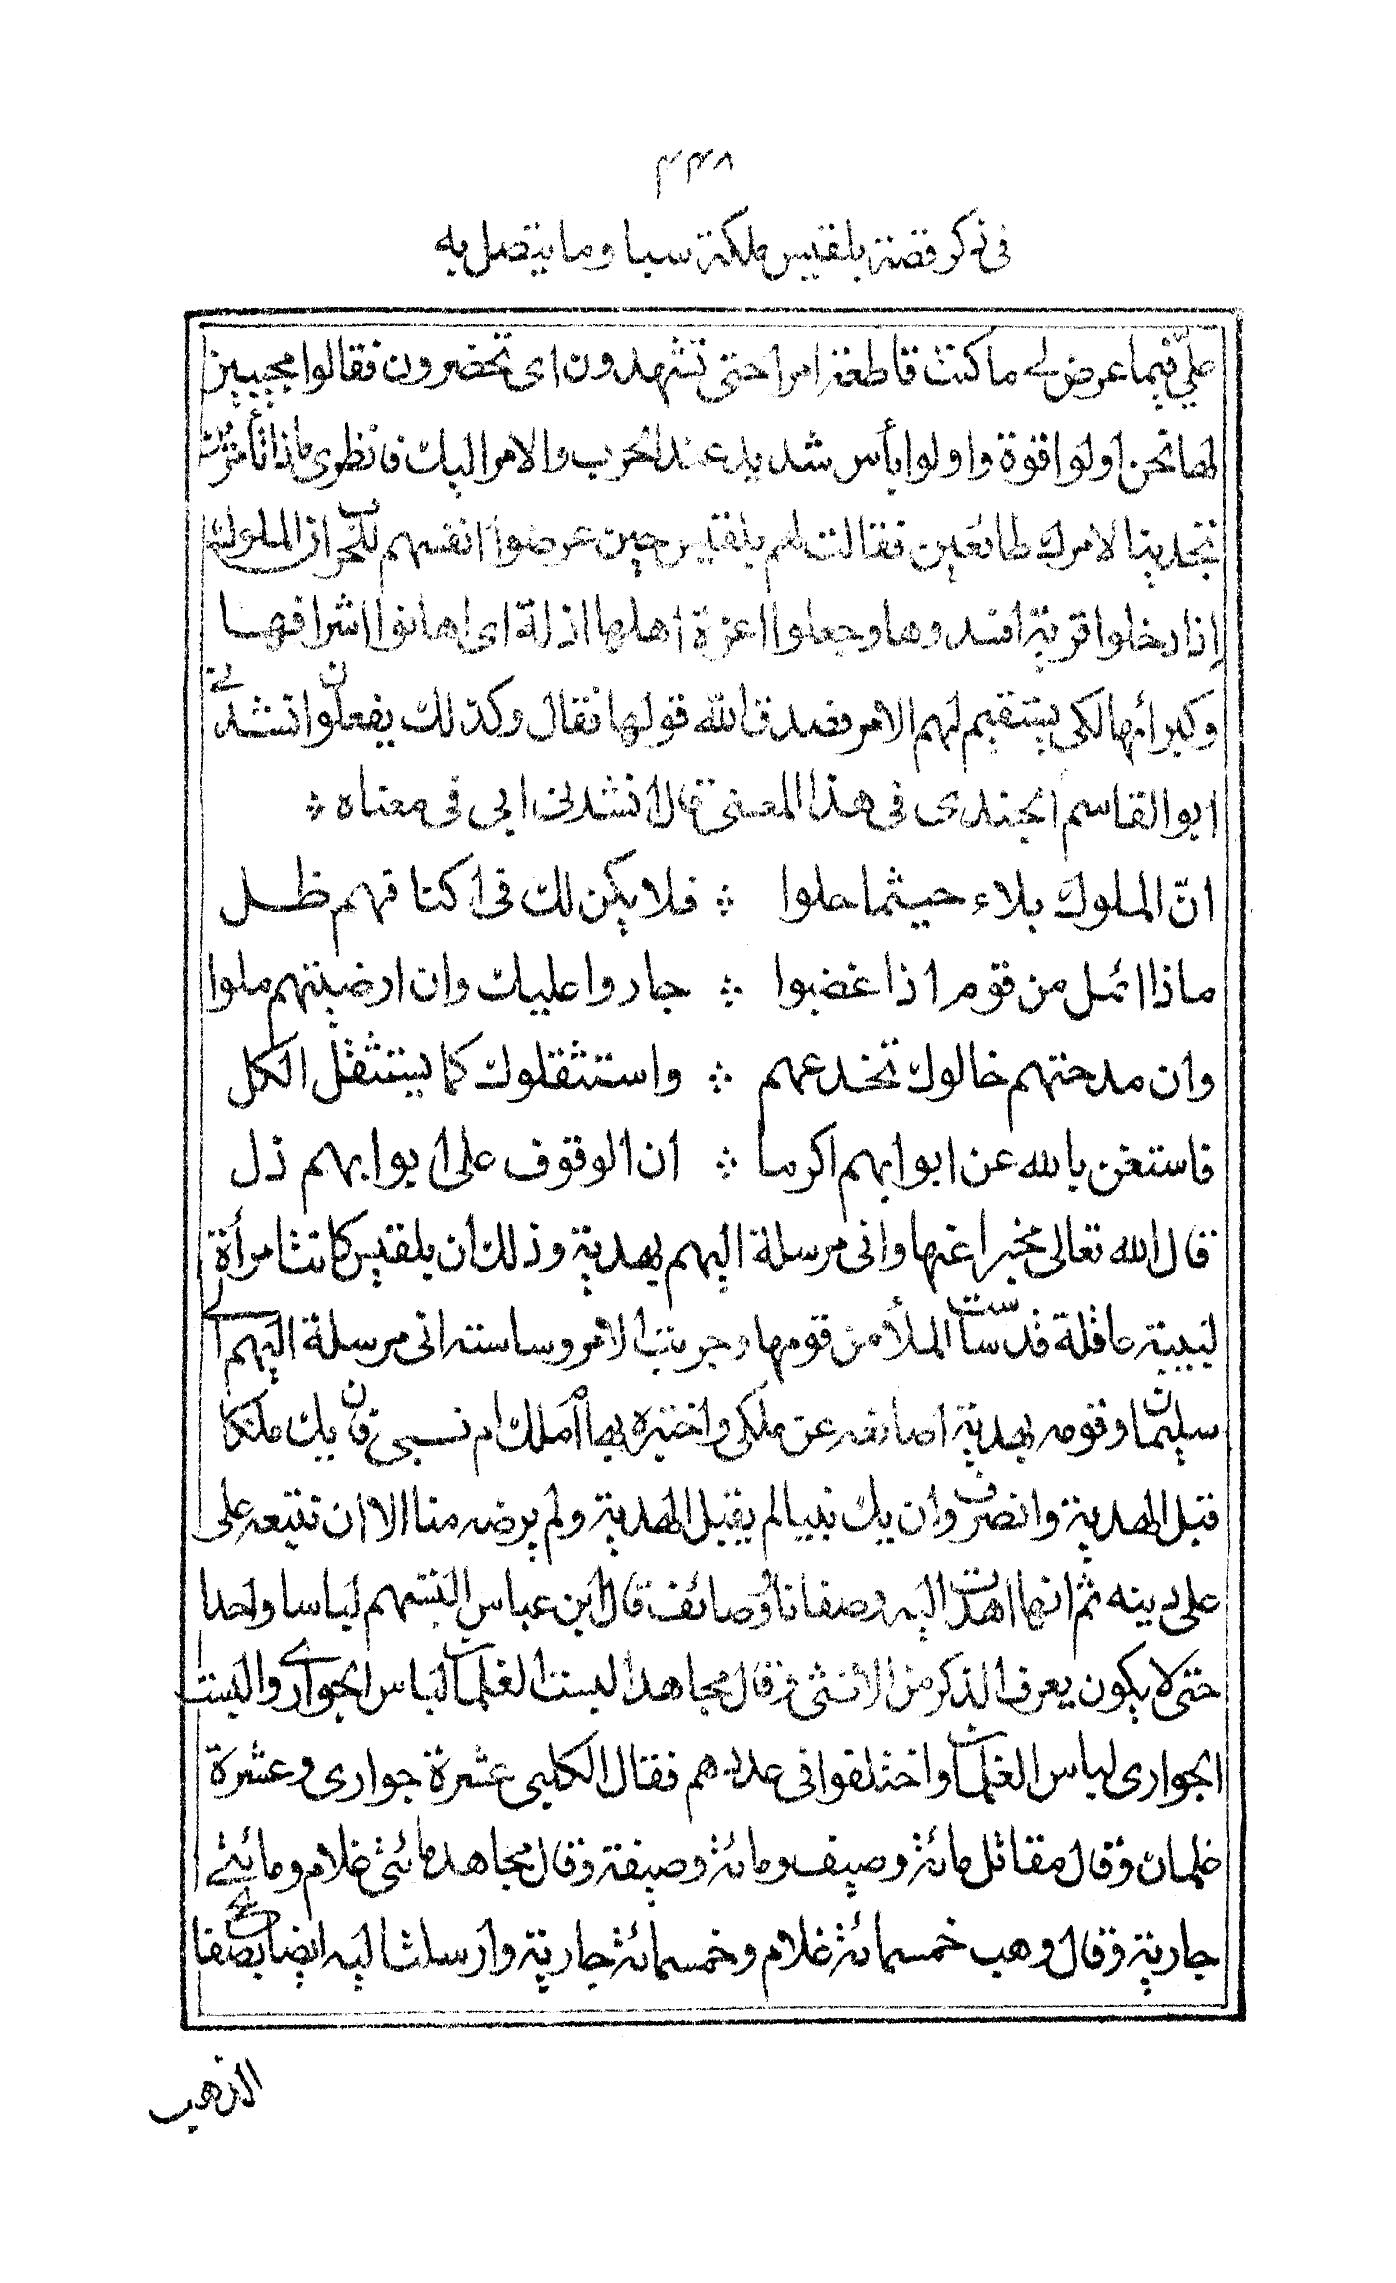 ٤٣٨
فى ذكر قصة بلقيس ملكة سبا وما يتصل به
علىّ فيما عرض لى ما كنت قاطعة امرا حتى تشهدون اى تحضرون فقالوا مجيبين
لها نحن اولوا قوة واولوا بأس شديد عند الحرب والامر اليك فانظرى ماذا تأمرين
تجدينا لامرك طائعين فقالت لهم بلقيس حين عرضوا انفسهم للحرب ان الملوك
إذا دخلوا قرية افسدوها وجعلوا اعزة اهلها اذلة اى اهانوا اشرافها
وكبرائها لكى يستقيم لهم الامر فصدق الله قولها فقال وكذلك يفعلون وانشدنى
ابو القاسم الجندى فى هذا المعنى قال انشدنى ابى فى معناه
انّ الملوك بلاء حيثما حلوا فلا يكن لك فى اكنافهم ظل
ماذا ائمل من قوم اذا غضبوا جاروا عليك وان ارضيتهم ملوا
وان مدحتهم خالوك تخدعهم واستثقلوك كما يستثقل الكل
فاستغن بالله عن ابوابهم اكرما ان الوقوف على ابوابهم ذل
قال الله تعالى مخبرا عنها وانى مرسلة اليهم بهدية وذلك أن بلقيس كانت امرأة
لبيبة عاقلة قد ساست الملأ من قومها وجربت الامر وساسته انى مرسلة اليهم اى
سليمان وقومه بهدية اصانعه عن ملكى واختبره بها أملك ام نبى فان يك ملكا
قبل الهدية وانصرف وان يك نبيا لم يقبل الهدية ولم يرضه منا الا ان نتبعه على
على دينه ثم انها اهدت اليه وصفانا ووصائف قال ابن عباس البستهم لباسا واحدا
حتى لا يكون يعرف الذكر من الانثى وقال مجاهد البست الغلمان لباس الجوارى والبست
الجوارى لباس الغلمان واختلفوا فى عددهم فقال الكلبى عشرة جوارى وعشرة
غلمان وقال مقاتل مائة وصيف ومائة وصيفة وقال مجاهد مائتى غلام ومائتى
جارية وقال وهب خمسمائة غلام وخمسمائة جارية وارسلت اليه ايضا بصفائح
الذهب